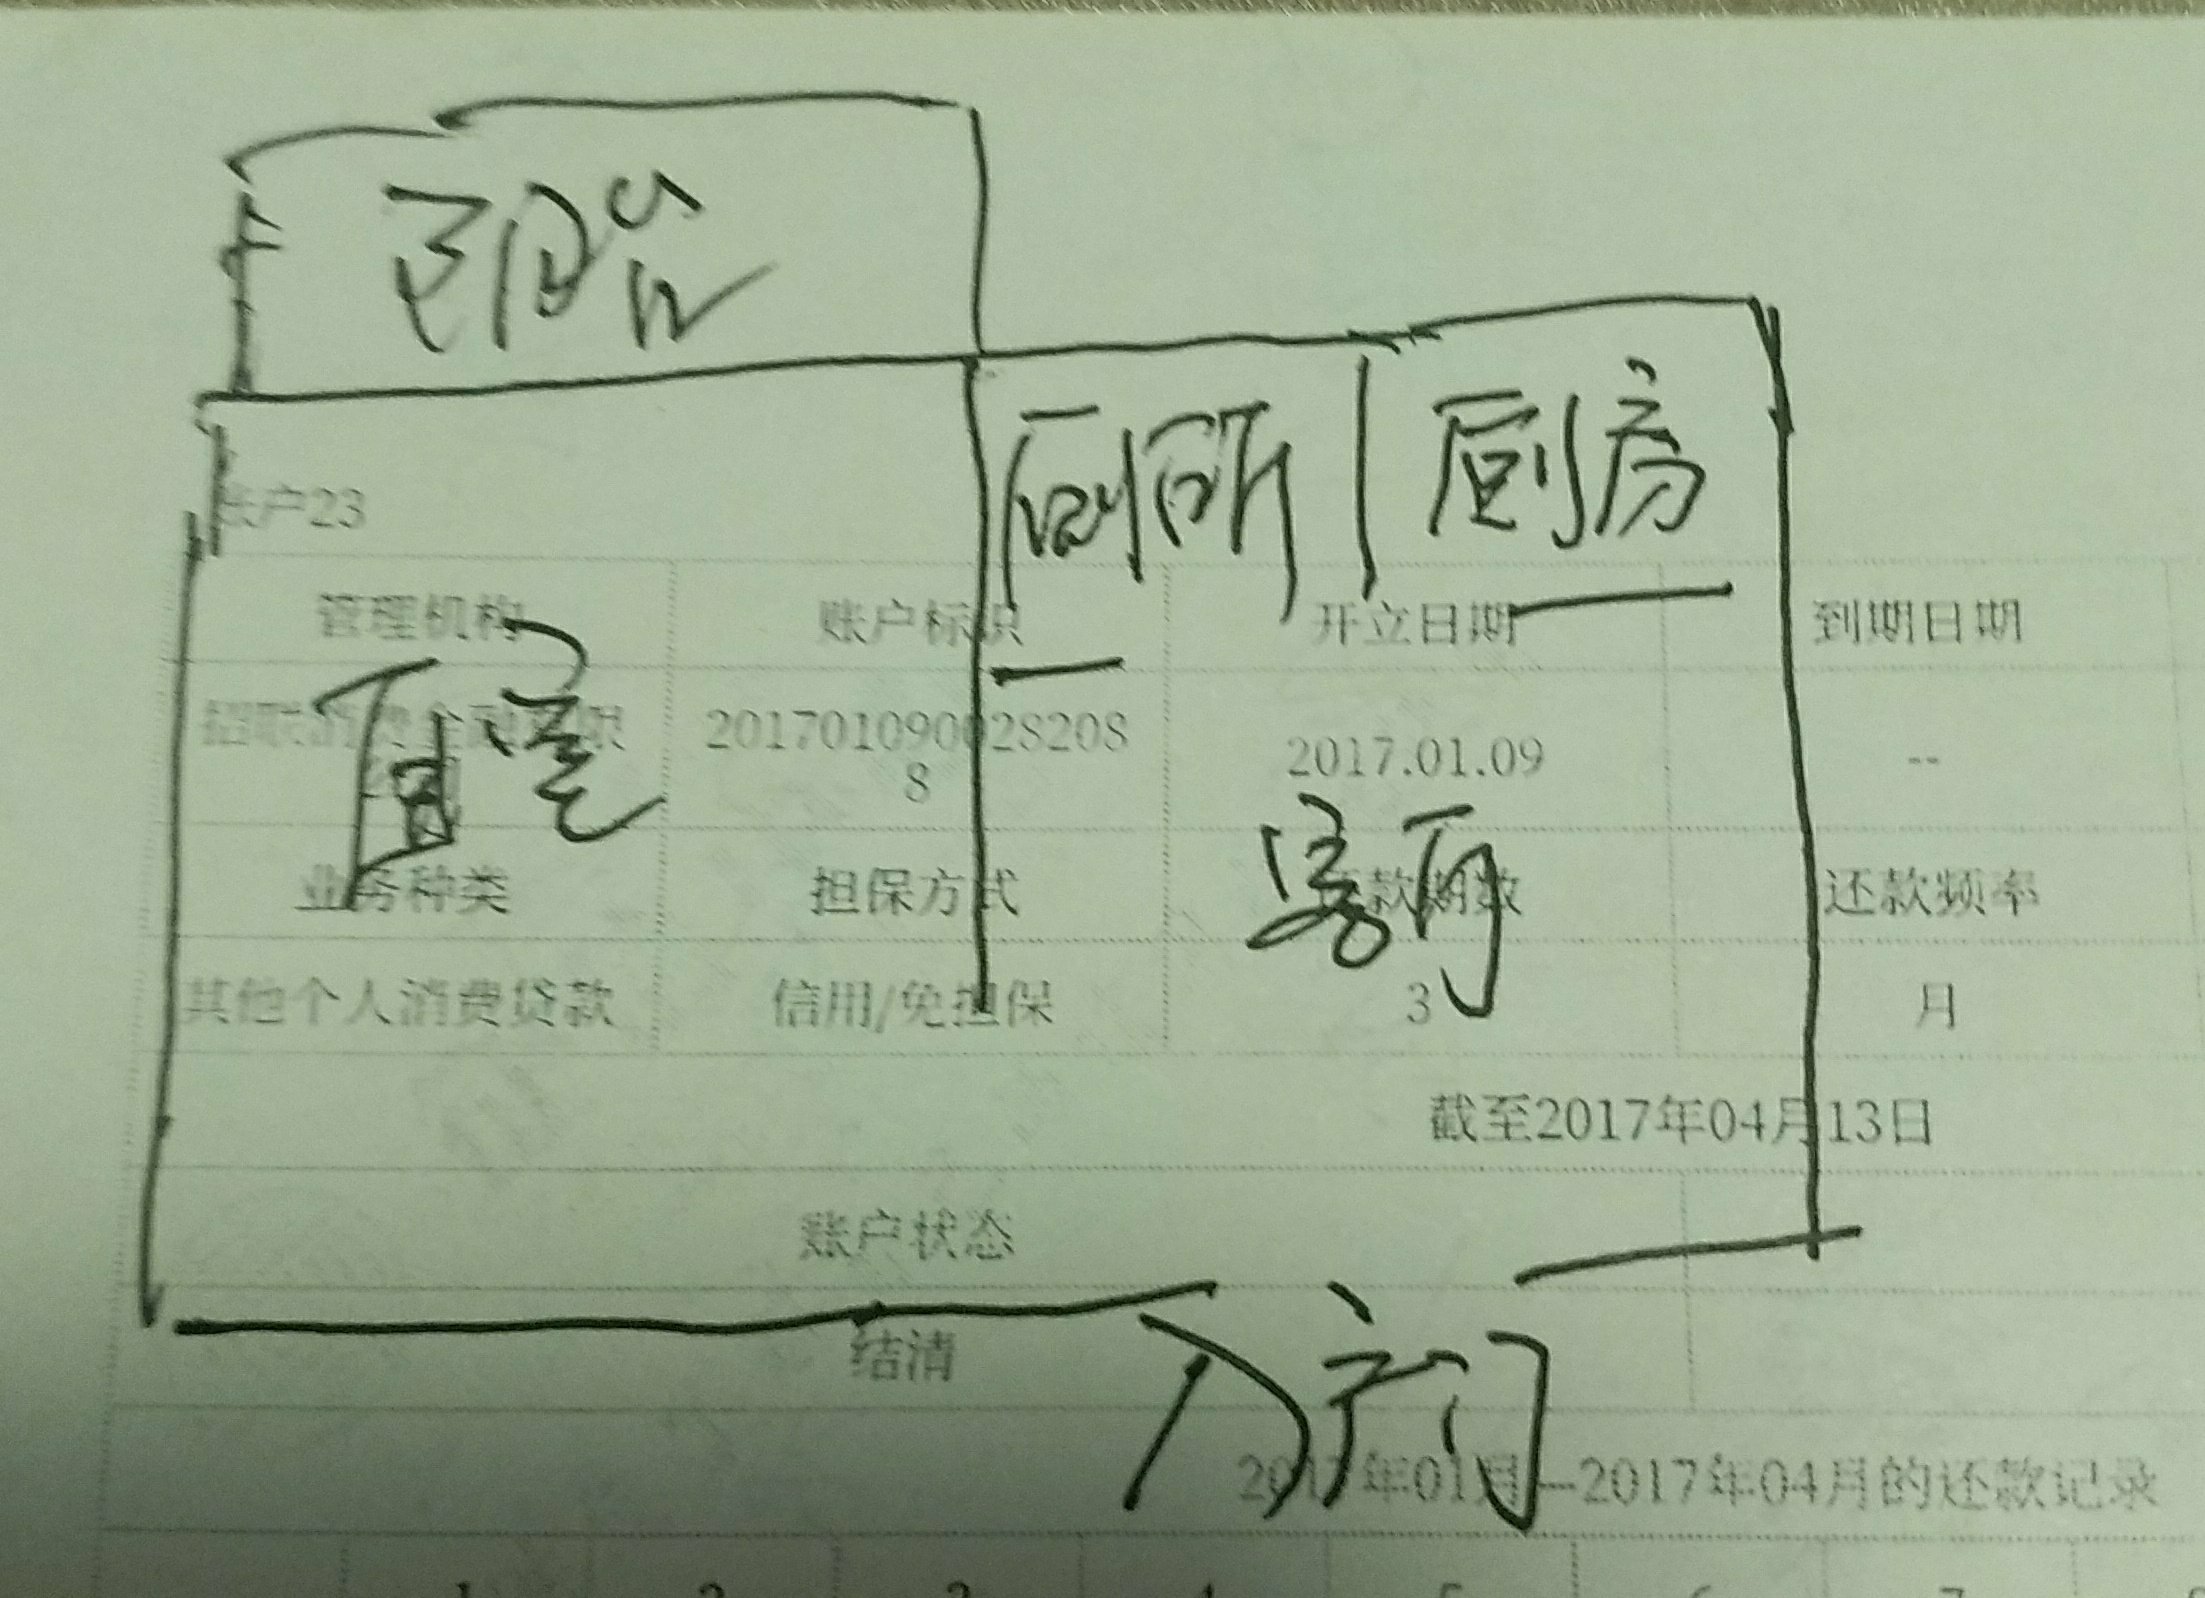 阳台
厕所 厨房
账户23
管理机构 账户标识 开立日期 到期日期
招联消费金融有限公司 2017010900282088 2017.01.09 --
客厅
业务种类 担保方式 还款期数 还款频率
其他个人消费贷款 信用/免担保 3 月
截至2017年04月13日
账户状态
结清
入户门
2017年01月—2017年04月的还款记录
1 2 3 4 5 6 7 8